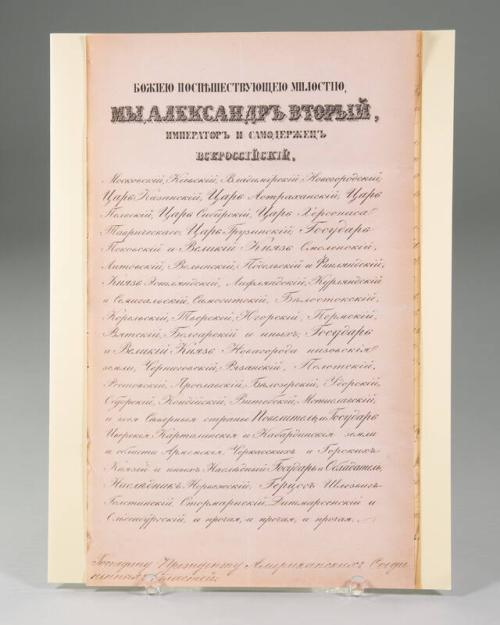 БОЖІЕЮ ПОСПѢШЕСТВУЮЩЕЮ МИЛОСТІЮ,
МЫ, АЛЕКСАНДРЪ ВТОРЫЙ,
ИМПЕРАТОРЪ И САМОДЕРЖЕЦЪ
ВСЕРОССІЙСКІЙ,
Московскій, Кіевскій, Владимірскій, Новогородскій,
Царь Казанскій, Царь Астраханскій, Царь
Польскій, Царь Сибирскій, Царь Херсониса
Таврическаго, Царь Грузинскій, Государь
Псковскій и Великій Князь Смоленскій,
Литовскій, Волынскій, Подольскій и Финляндскій,
Князь Эстляндскій, Лифляндскій, Курляндскій
и Семигальскій, Самогитскій, Бѣлостокскій,
Корельскій, Тверскій, Югорскій, Пермскій,
Вятскій, Болгарскій и иныхъ; Государь
и Великій Князь Новагорода низовскія
земли, Черниговскій, Рязанскій, Полотскій,
Ростовскій, Ярославскій, Бѣлозерскій, Удорскій,
Обдорскій, Кондійскій, Витебскій, Мстиславскій,
и всея Сѣверныя страны Повелитель, и Государь
Иверскія, Карталинскія и Кабардинскія земли
и области Арменскія, Черкасскихъ и Горскихъ
Князей и иныхъ Наслѣдный Государь и Обладатель,
Наслѣдникъ Норвежскій, Герцогъ Шлезвигъ-
Голстинскій, Стормарнскій, Дитмарсенскій и
Олденбургскій, и прочая, и прочая, и прочая.
Господину Президенту Американскихъ Соеди-
ненныхъ Областей.